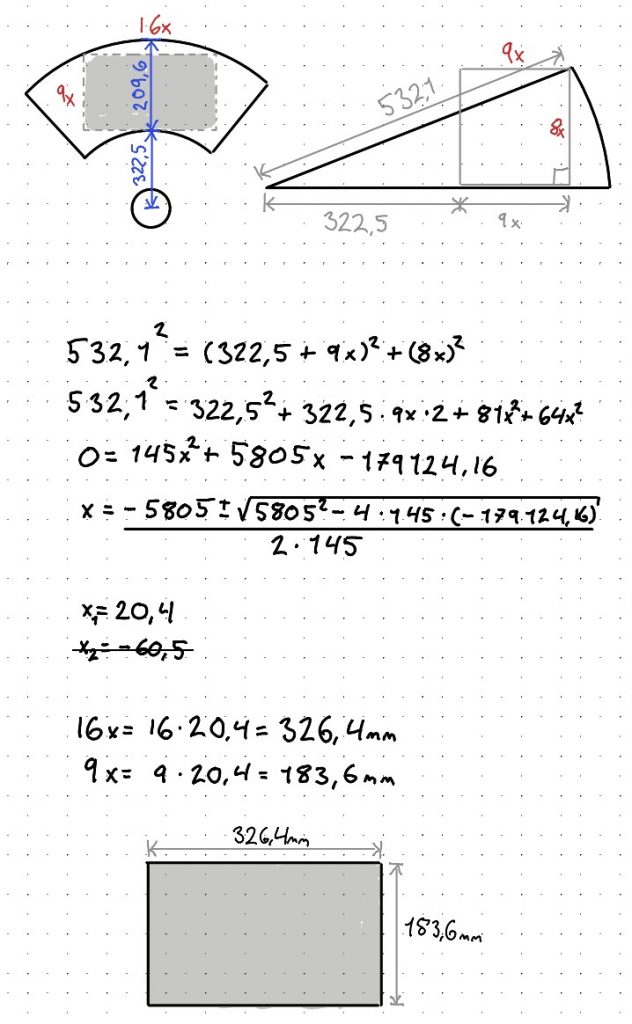 16x
9x
209,6
322,5
9x
532,1
8x
322,5
9x
532,1² = (322,5 + 9x)² + (8x)²
532,1² = 322,5² + 322,5 · 9x · 2 + 81x² + 64x²
0 = 145x² + 5805x - 179124,16
x = -5805 ± √5805² - 4 · 145 · (-179124,16)
2 · 145
x₁= 20,4
x₂ = -60,5
16x = 16 · 20,4 = 326,4mm
9x = 9 · 20,4 = 183,6mm
326,4mm
183,6mm